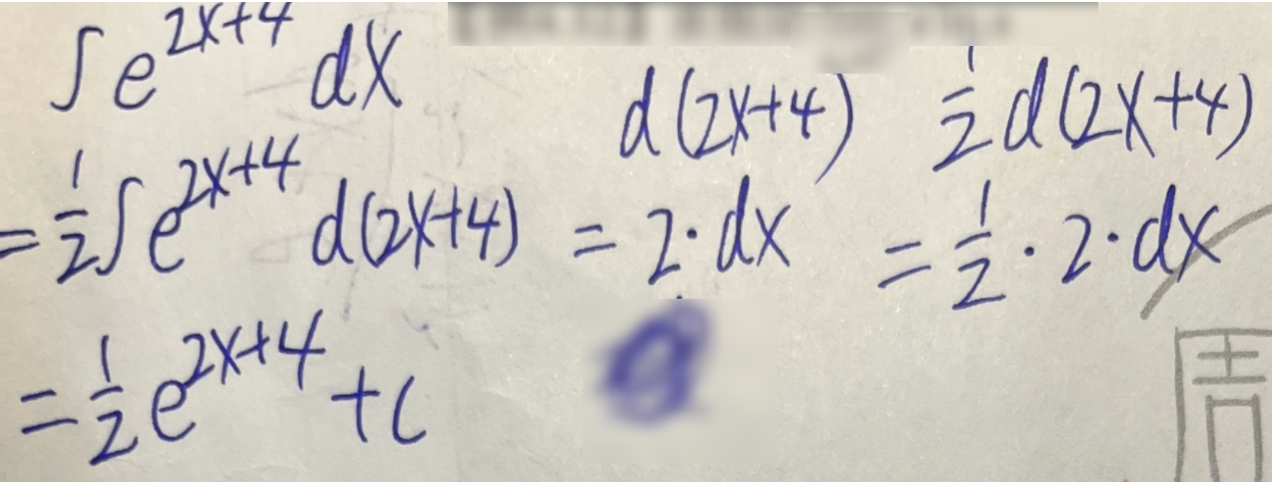 ∫e^{2x+4} dx
= 1/2 ∫e^{2x+4} d(2x+4)
= 1/2 e^{2x+4} + c
d(2x+4)
= 2·dx
1/2 d(2x+4)
= 1/2·2·dx
周